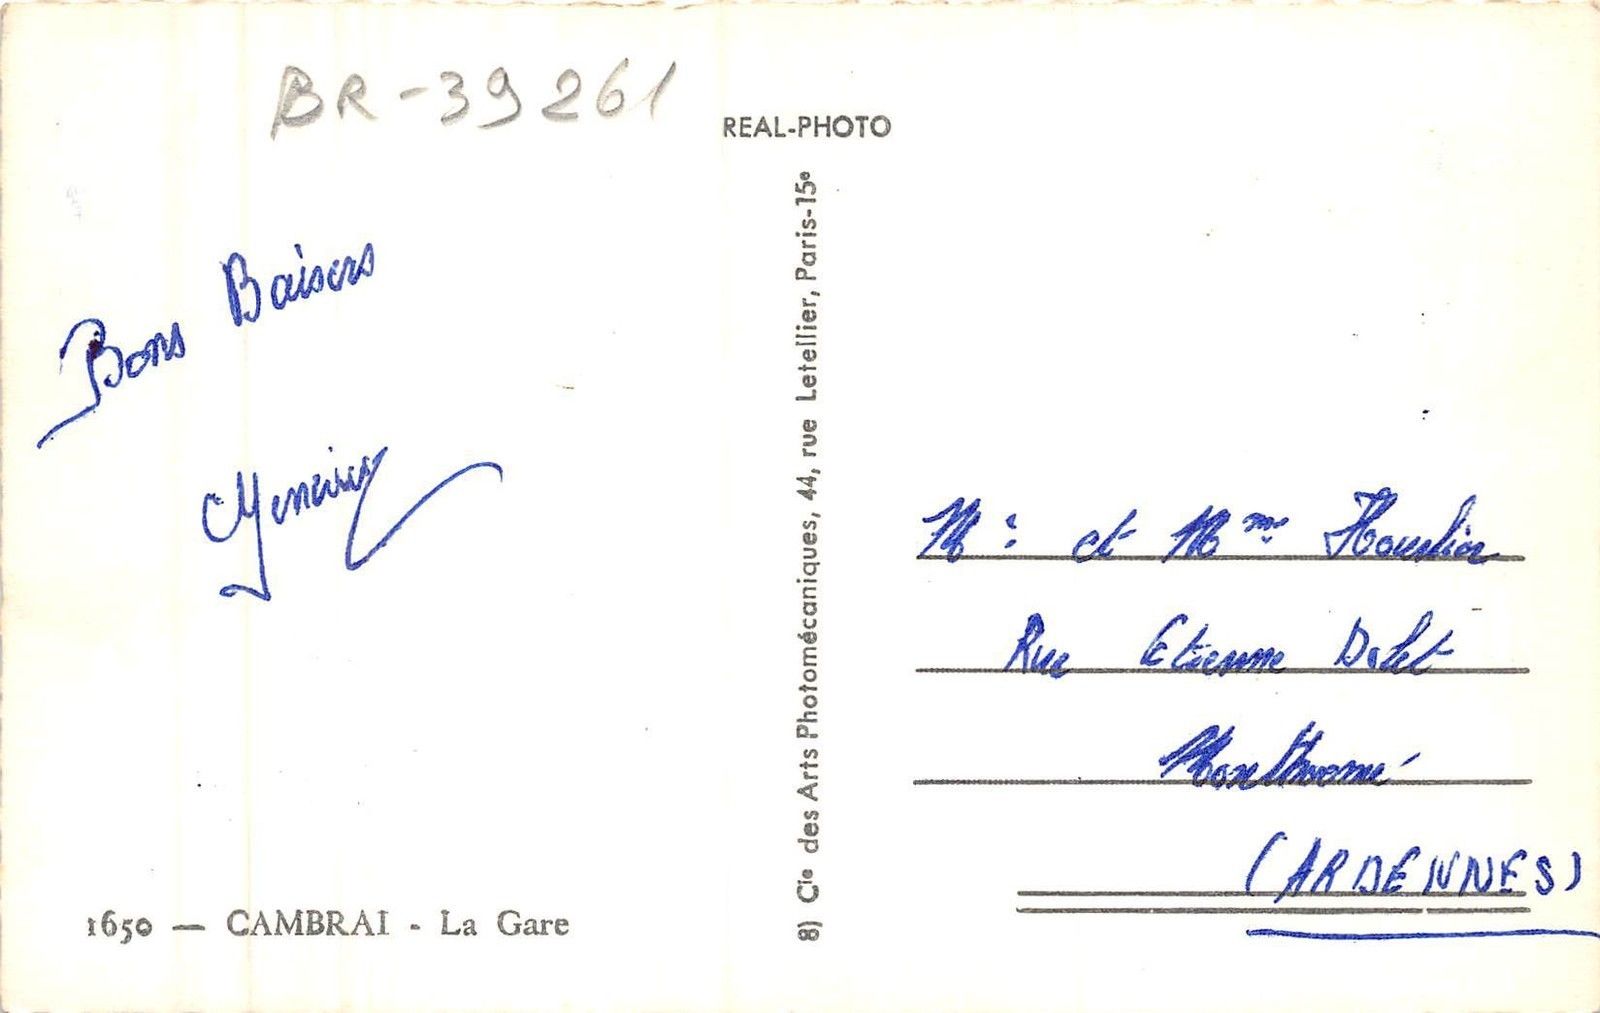 BR-39261
REAL-PHOTO
Bons Baisers
8) Cie des Arts Photomécaniques, 44, rue Letellier, Paris-15e
Mr et Mme
Rue Etienne Dolet
Monthermé
(ARDENNES)
1650 — CAMBRAI - La Gare